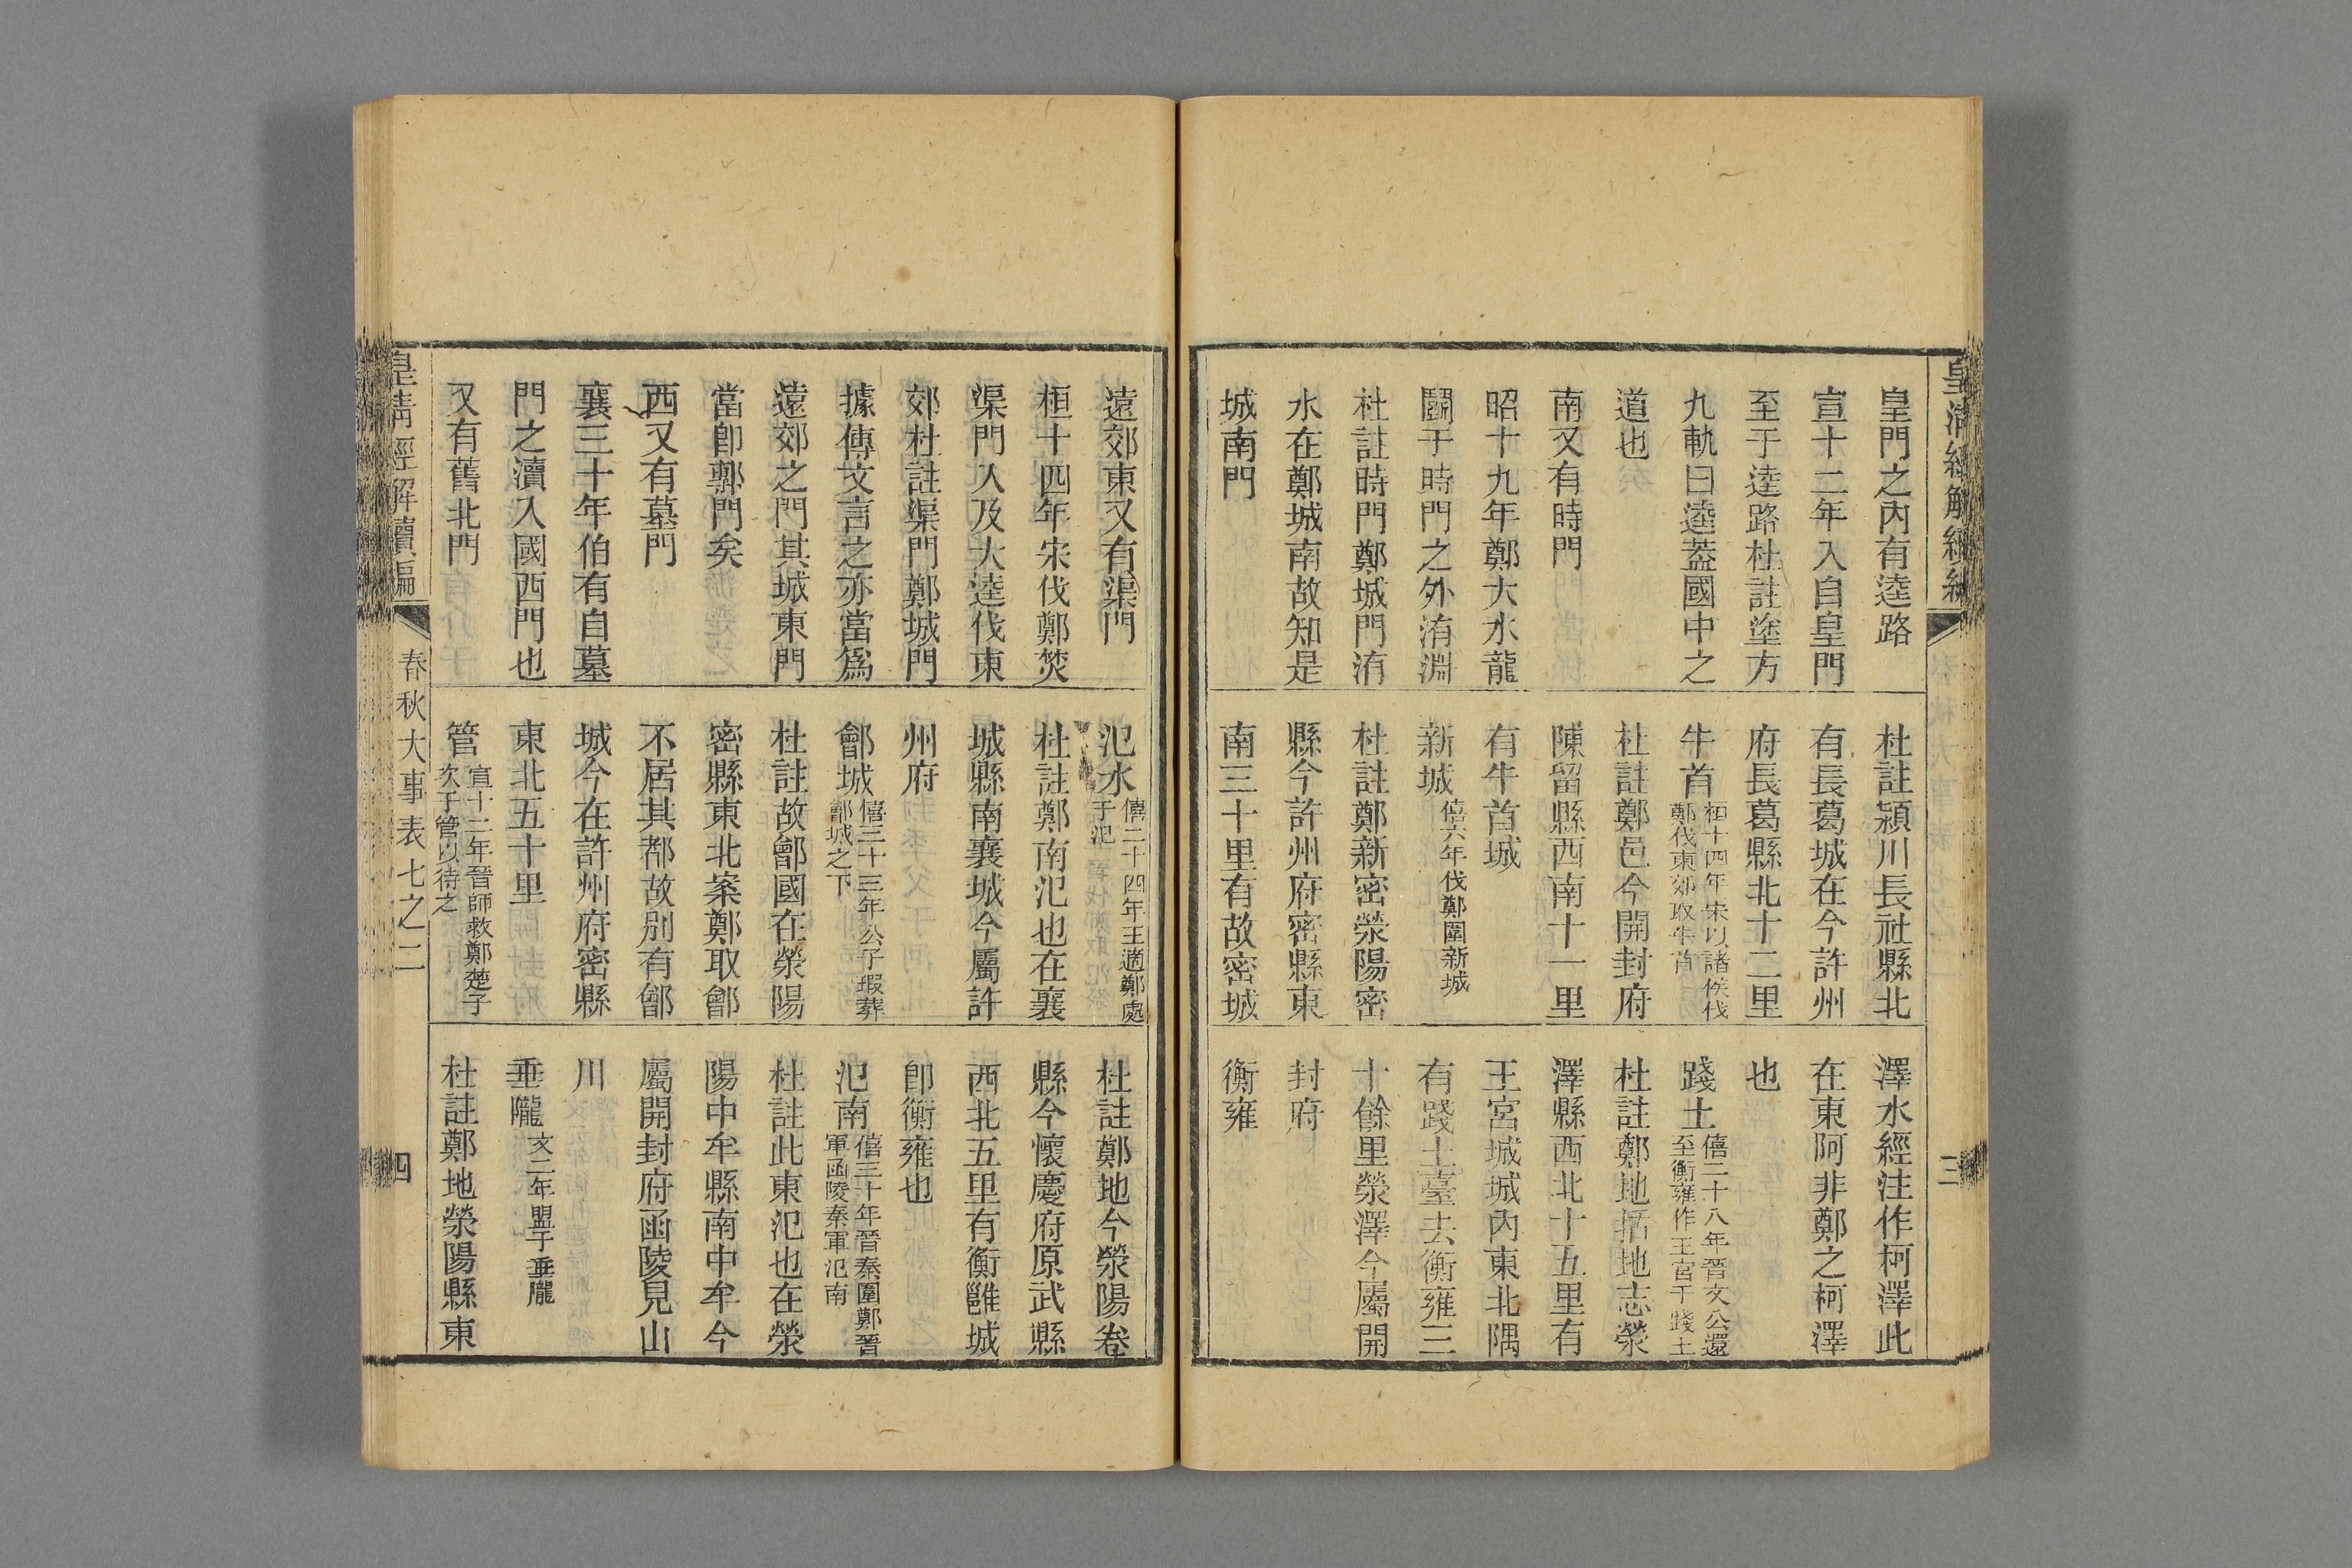 皇門之內有逵路
宣十二年入自皇門
至于逵路杜註塗方
九軌曰逵葢國中之
道也
南又有時門
昭十九年鄭大水龍
鬭于時門之外洧淵
杜註時門鄭城門洧
水在鄭城南故知是
城南門
杜註潁川長社縣北
有長葛城在今許州
府長葛縣北十二里
牛首桓十四年宋以諸侯伐
鄭伐東郊取牛首
杜註鄭邑今開封府
陳留縣西南十一里
有牛首城
新城僖六年伐鄭圍新城
杜註鄭新密滎陽密
縣今許州府密縣東
南三十里有故密城
澤水經注作柯澤此
在東阿非鄭之柯澤
也
踐土僖二十八年晉文公還
至衡雍作王宮于踐土
杜註鄭地括地志滎
澤縣西北十五里有
王宮城城內東北隅
有踐土臺去衡雍三
十餘里滎澤今屬開
封府
衡雍
三
遠郊東又有渠門
桓十四年宋伐鄭焚
渠門入及大逵伐東
郊杜註渠門鄭城門
據傳文言之亦當爲
遠郊之門其城東門
當卽鄟門矣
西又有墓門
襄三十年伯有自墓
門之瀆入國西門也
又有舊北門
氾水僖二十四年王適鄭處
于氾
杜註鄭南氾也在襄
城縣南襄城今屬許
州府
鄶城僖三十三年公子瑕葬
鄶城之下
杜註故鄶國在滎陽
密縣東北案鄭取鄶
不居其都故別有鄶
城今在許州府密縣
東北五十里
管宣十二年晉師救鄭楚子
次于管以待之
杜註鄭地今滎陽卷
縣今懷慶府原武縣
西北五里有衡雝城
卽衡雍也
氾南僖三十年晉秦圍鄭晉
軍函陵秦軍氾南
杜註此東氾也在滎
陽中牟縣南中牟今
屬開封府函陵見山
川
垂隴文二年盟于垂隴
杜註鄭地滎陽縣東
皇清經解續編
春秋大事表七之二
四